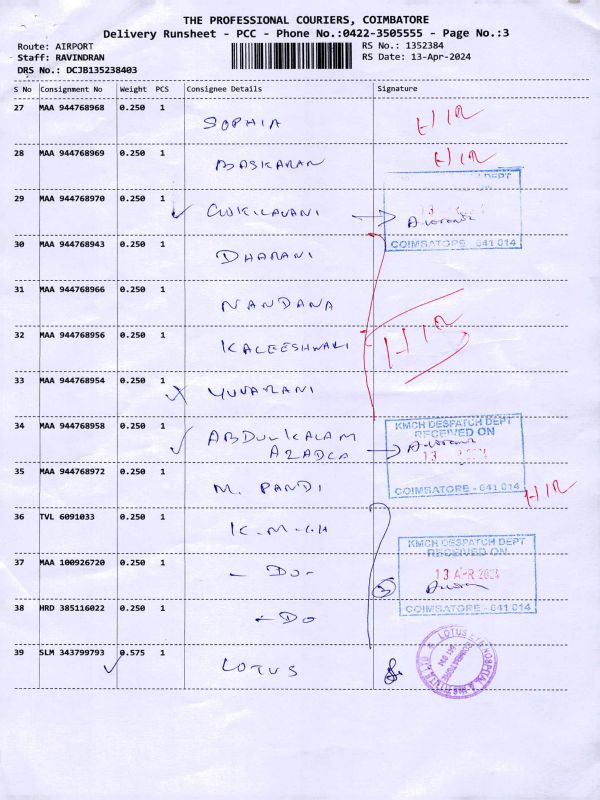 THE PROFESSIONAL COURIERS, COIMBATORE
Delivery Runsheet - PCC - Phone No.:0422-3505555 - Page No.:3
Route: AIRPORT RS No.: 1352384
Staff: RAVINDRAN RS Date: 13-Apr-2024
DRS No.: DCJB135238403
S No Consignment No Weight PCS Consignee Details Signature
27 MAA 944768968 0.250 1 SOPHIA H/R
28 MAA 944768969 0.250 1 BASKARAN H/R
29 MAA 944768970 0.250 1 COIMBATORE - 641 014
30 MAA 944768943 0.250 1 DHARANI
31 MAA 944768966 0.250 1 NANDANA
32 MAA 944768956 0.250 1 KALEESHWARI H/R
33 MAA 944768954 0.250 1 YUVARANI
34 MAA 944768958 0.250 1 ABDULKALAM
KMCH DESPATCH DEPT
RECEIVED ON
13
COIMBATORE - 641 014
35 MAA 944768972 0.250 1 M. PANDI H/R
36 TVL 6091033 0.250 1 K.M.C.H
KMCH DESPATCH DEPT
RECEIVED ON
37 MAA 100926720 0.250 1 - DO - 13 APR 2024
38 HRD 385116022 0.250 1 - DO COIMBATORE - 641 014
39 SLM 343799793 0.575 1 LOTUS
LOTUS EYE HOSPITAL & INSTITUTE